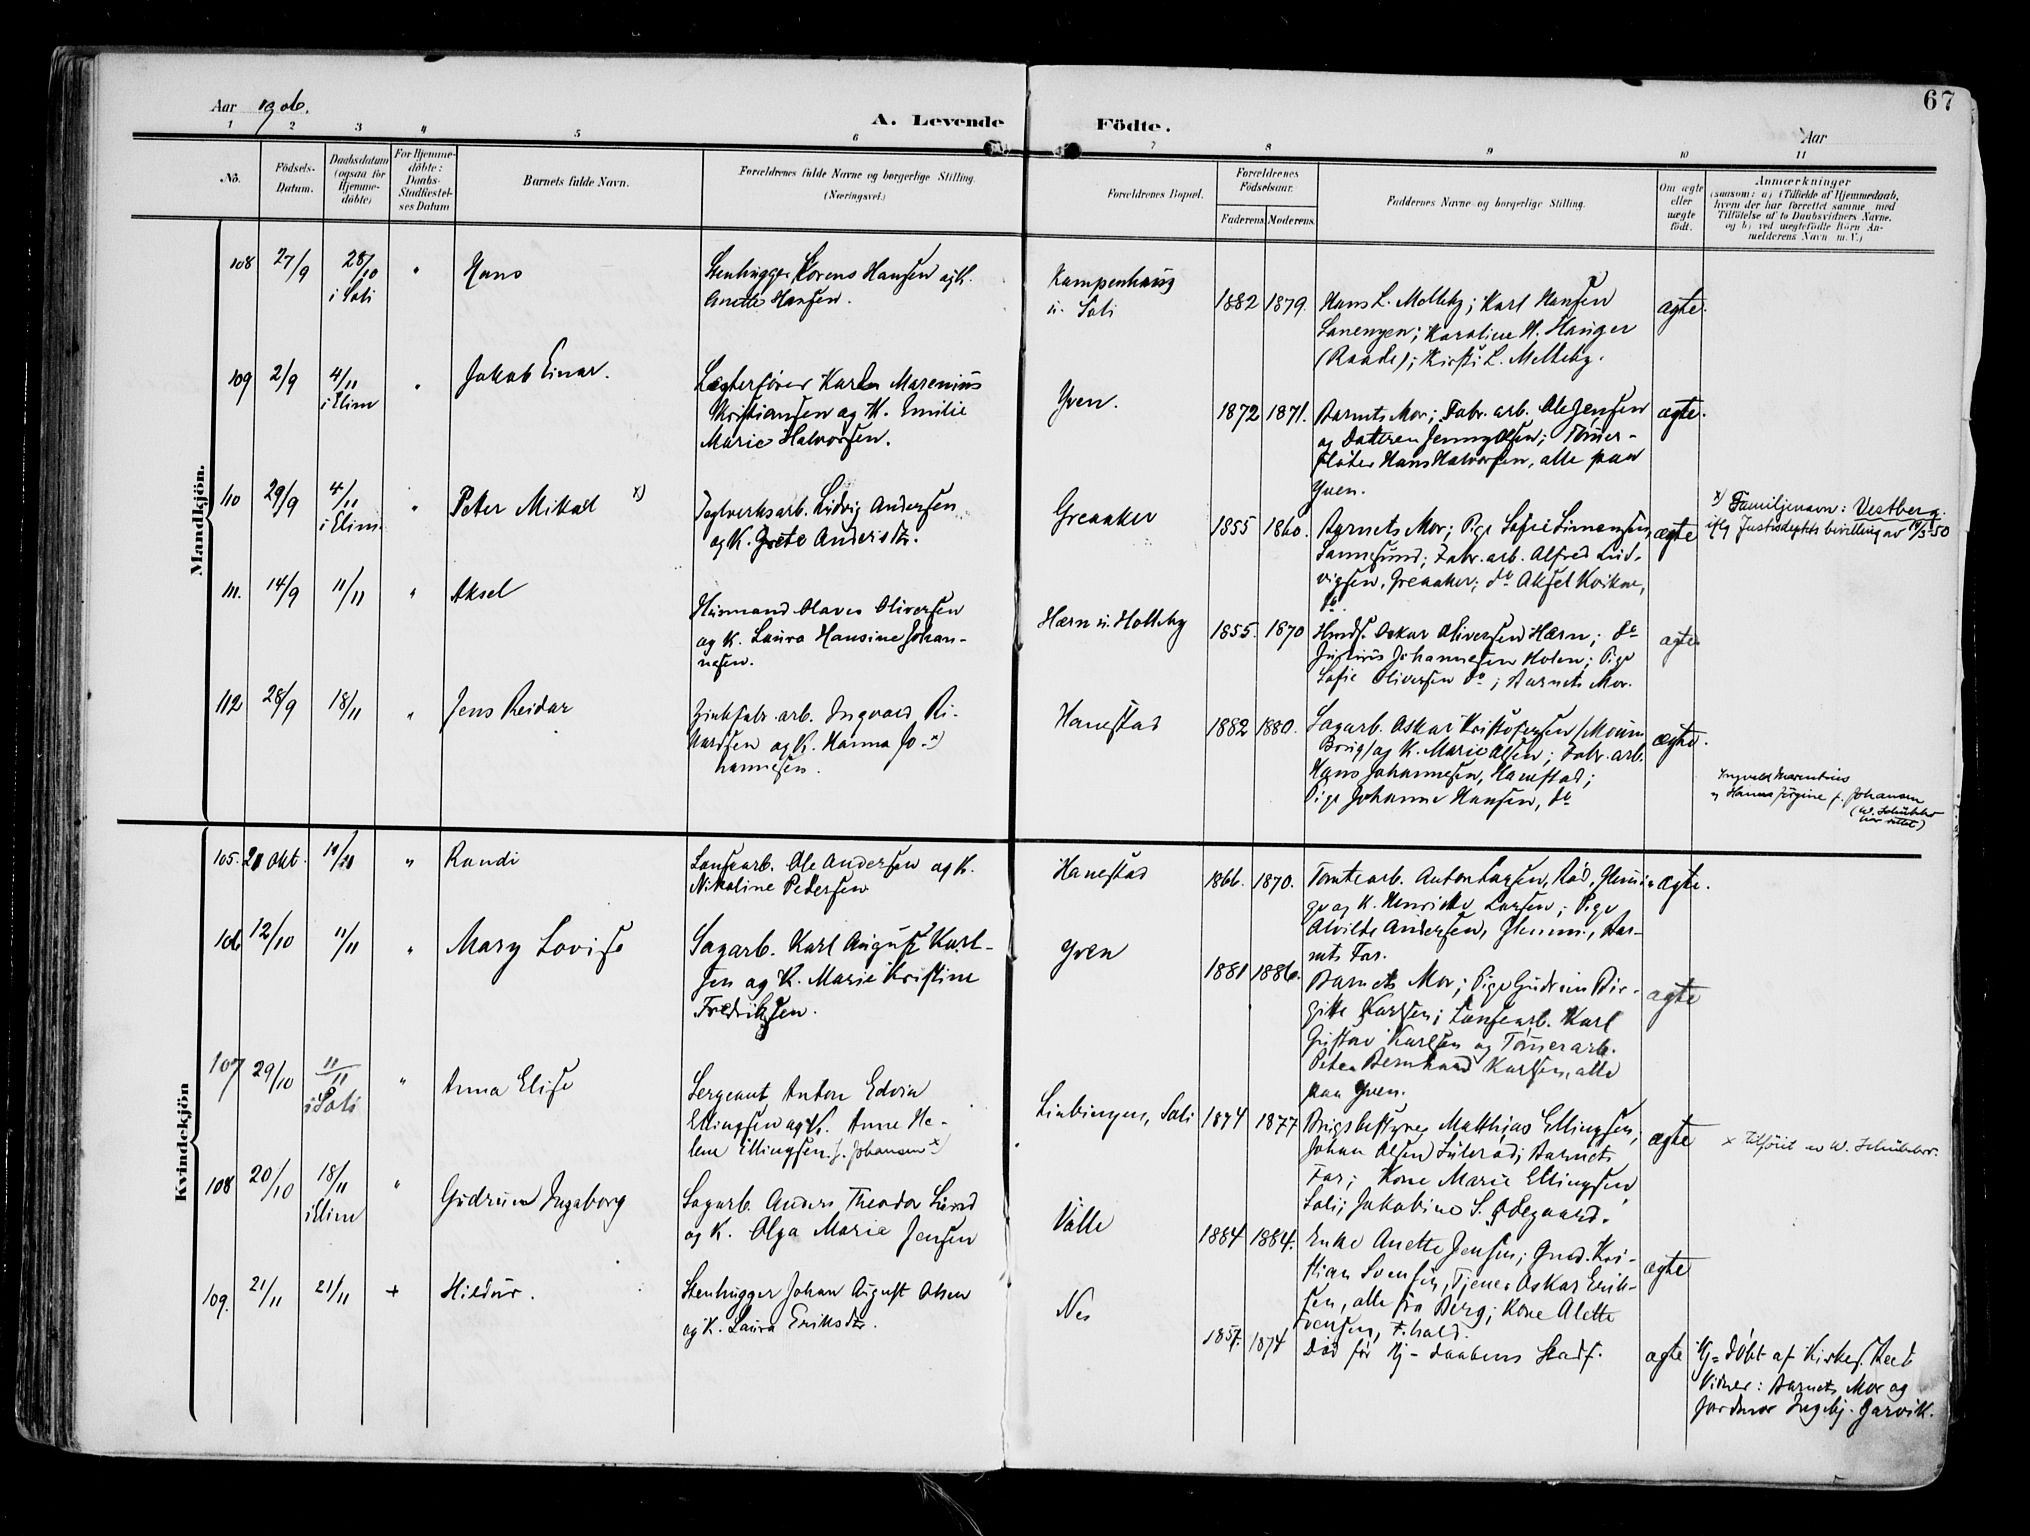 67
Aar 1906.
A. Levende Födte.
Aar
1 2 3 4 5 6 7 8 9 10 11
No.
Födsels-Datum.
Daabsdatum (ogsaa for Hjemme-döbte)
For Hjemme-döbte: Daabs-Stadfæstel-ses Datum
Barnets fulde Navn.
Forældrenes fulde Navne og borgerlige Stilling.
(Næringsvei.)
Forældrenes Bopæl.
Forældrenes Födselsaar.
Faderens Moderens.
Faddernes Navne og borgerlige Stilling.
Om ægte eller uægte födt.
Anmærkninger
(saasom: a) i Tilfælde af Hjemmedaab,
hvem der har forrettet samme, med
Tilföielse af to Daabsvidners Navne,
og b) ved uægtefödte Börn An-
melderens Navn m. V.)
Mandkjön.
108 27/9 28/10 i Soli " Hans
Stenhugger Lorens Hansen og K.
Anette Hansen.
Kampenhaug
u. Soli
1882 1879.
Hans L. Melleby; Karl Hansen
Sanengen; Karoline H. Hauger
(Raade); Kirsti L. Melleby.
ægte.
109 2/9 4/11 i Elim " Jakob Einar.
Lægterfører Karl Marenius
Kristiansen og K. Emilie
Marie Halvorsen.
Yven.
1872 1871.
Barnets Mor; Fabr. arb. Ole Jensen
og Datteren Jenny Olsen; Tømmer-
fløter Hans Halvorsen, alle paa
Yven.
ægte.
110 29/9 4/11 i Elim. " Peter Mikal x)
Teglverksarb. Ludvig Andersen
og K. Grete Andersdtr.
Greaaker
1855 1860.
Barnets Mor; Pige Sofie Simensen,
Sannesund; Fabr. arb. Alfred Lud-
vigsen, Greaaker; do Aksel Kvikne,
do.
ægte
x) Familienavn: Vestberg.
iflg Justisdeptets bevilling av 19/5-50
111. 14/9 11/11 " Aksel
Husmand Olaves Oliversen
og K. Laura Hansine Johan-
nesen.
Hærn u. Holleby
1855. 1870
Husm. Oskar Oliversen Hærn; do
Julius Johannesen Holen; Pige
Sofie Oliversen do; Barnets Mor.
ægte
112 28/9 18/11 " Jens Reidar
Zinkfabr. arb. Ingvald Ri-
kardsen og K. Hanna Jo- x)
hannesen.
Hanestad
1882 1880.
Sagarb. Oskar Kristofersen (Moum
Brug) og K. Marie Olsen; Fabr. arb.
Hans Johannesen, Hanestad;
Pige Johanne Hansen, do
ægte.
Ingvald Marentius
og Hanna Jørgine f. Johansen
(W. Schübeler
har rettet)
Kvindekjön
105. 21 Okt. 11/11 " Randi
Lænsearb. Ole Andersen og K.
Nikoline Pedersen
Hanestad
1866. 1870.
Tomtearb. Anton Larsen, Rød, Glemmin-
ge og K. Henrikke Larsen; Pige
Alvilde Andersen, Glemmi, Bar-
nets Far.
ægte.
106 12/10 11/11 " Mary Lovise
Sagarb. Karl August Karl-
sen og K. Marie Kristine
Fredriksen.
Yven
1881 1886.
Barnets Mor; Pige Gudrun Bir-
gitte Karlsen; Lænsearb. Karl
Gustav Karlsen og Tømmerarb.
Peter Bernhard Karlsen, alle
paa Yven.
ægte
107 29/10 11/11 i Soli " Anna Elise
Sergeant Anton Edvin
Ellingsen og K. Anne He-
lene Ellingsen f. Johansen x)
Linbingen, Soli
1874 1877
Brugsbestyrer Matthias Ellingsen;
Johan Olsen Sulerød; Barnets
Far; Kone Marie Ellingsen,
Soli; Jakobine S. Ødegaard.
ægte
x Tilføiet av W. Schübeler.
108 20/10 18/11 i Elim " Gudrun Ingeborg
Sagarb. Anders Theodor Lund
og K. Olga Marie Jensen
Valle
1884 1884.
Enke Anette Jensen; Gmd. Kri-
stian Svensen, Tjener Oskar Erik-
sen, alle fra Berg; Kone Alette
Svensen, F.hald.
ægte
109. 21/11 21/11 + Hildur.
Stenhugger Johan August Olsen
og K. Laura Eriksdtr.
Nes
1857. 1874
Død før Hj-daabens Stadf.
ægte
Hj-døbt af Kirkes. Reet
Vidner: Barnets Mor og
Jordmor Ingebj. Garvik.